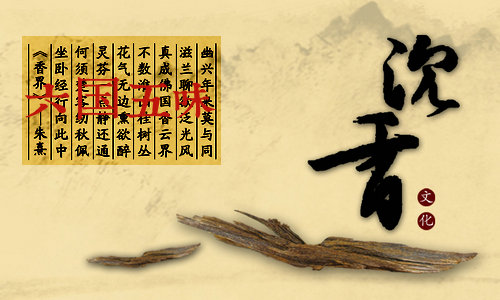 幽兴年来莫与同
滋兰聊欲泛光风
真成佛国香云界
不数淮山桂树丛
花气无边熏欲醉
灵芬一点静还通
何须楚客纫秋佩
坐卧经行向此中
《香界》朱熹
六国五味
沉香
文化